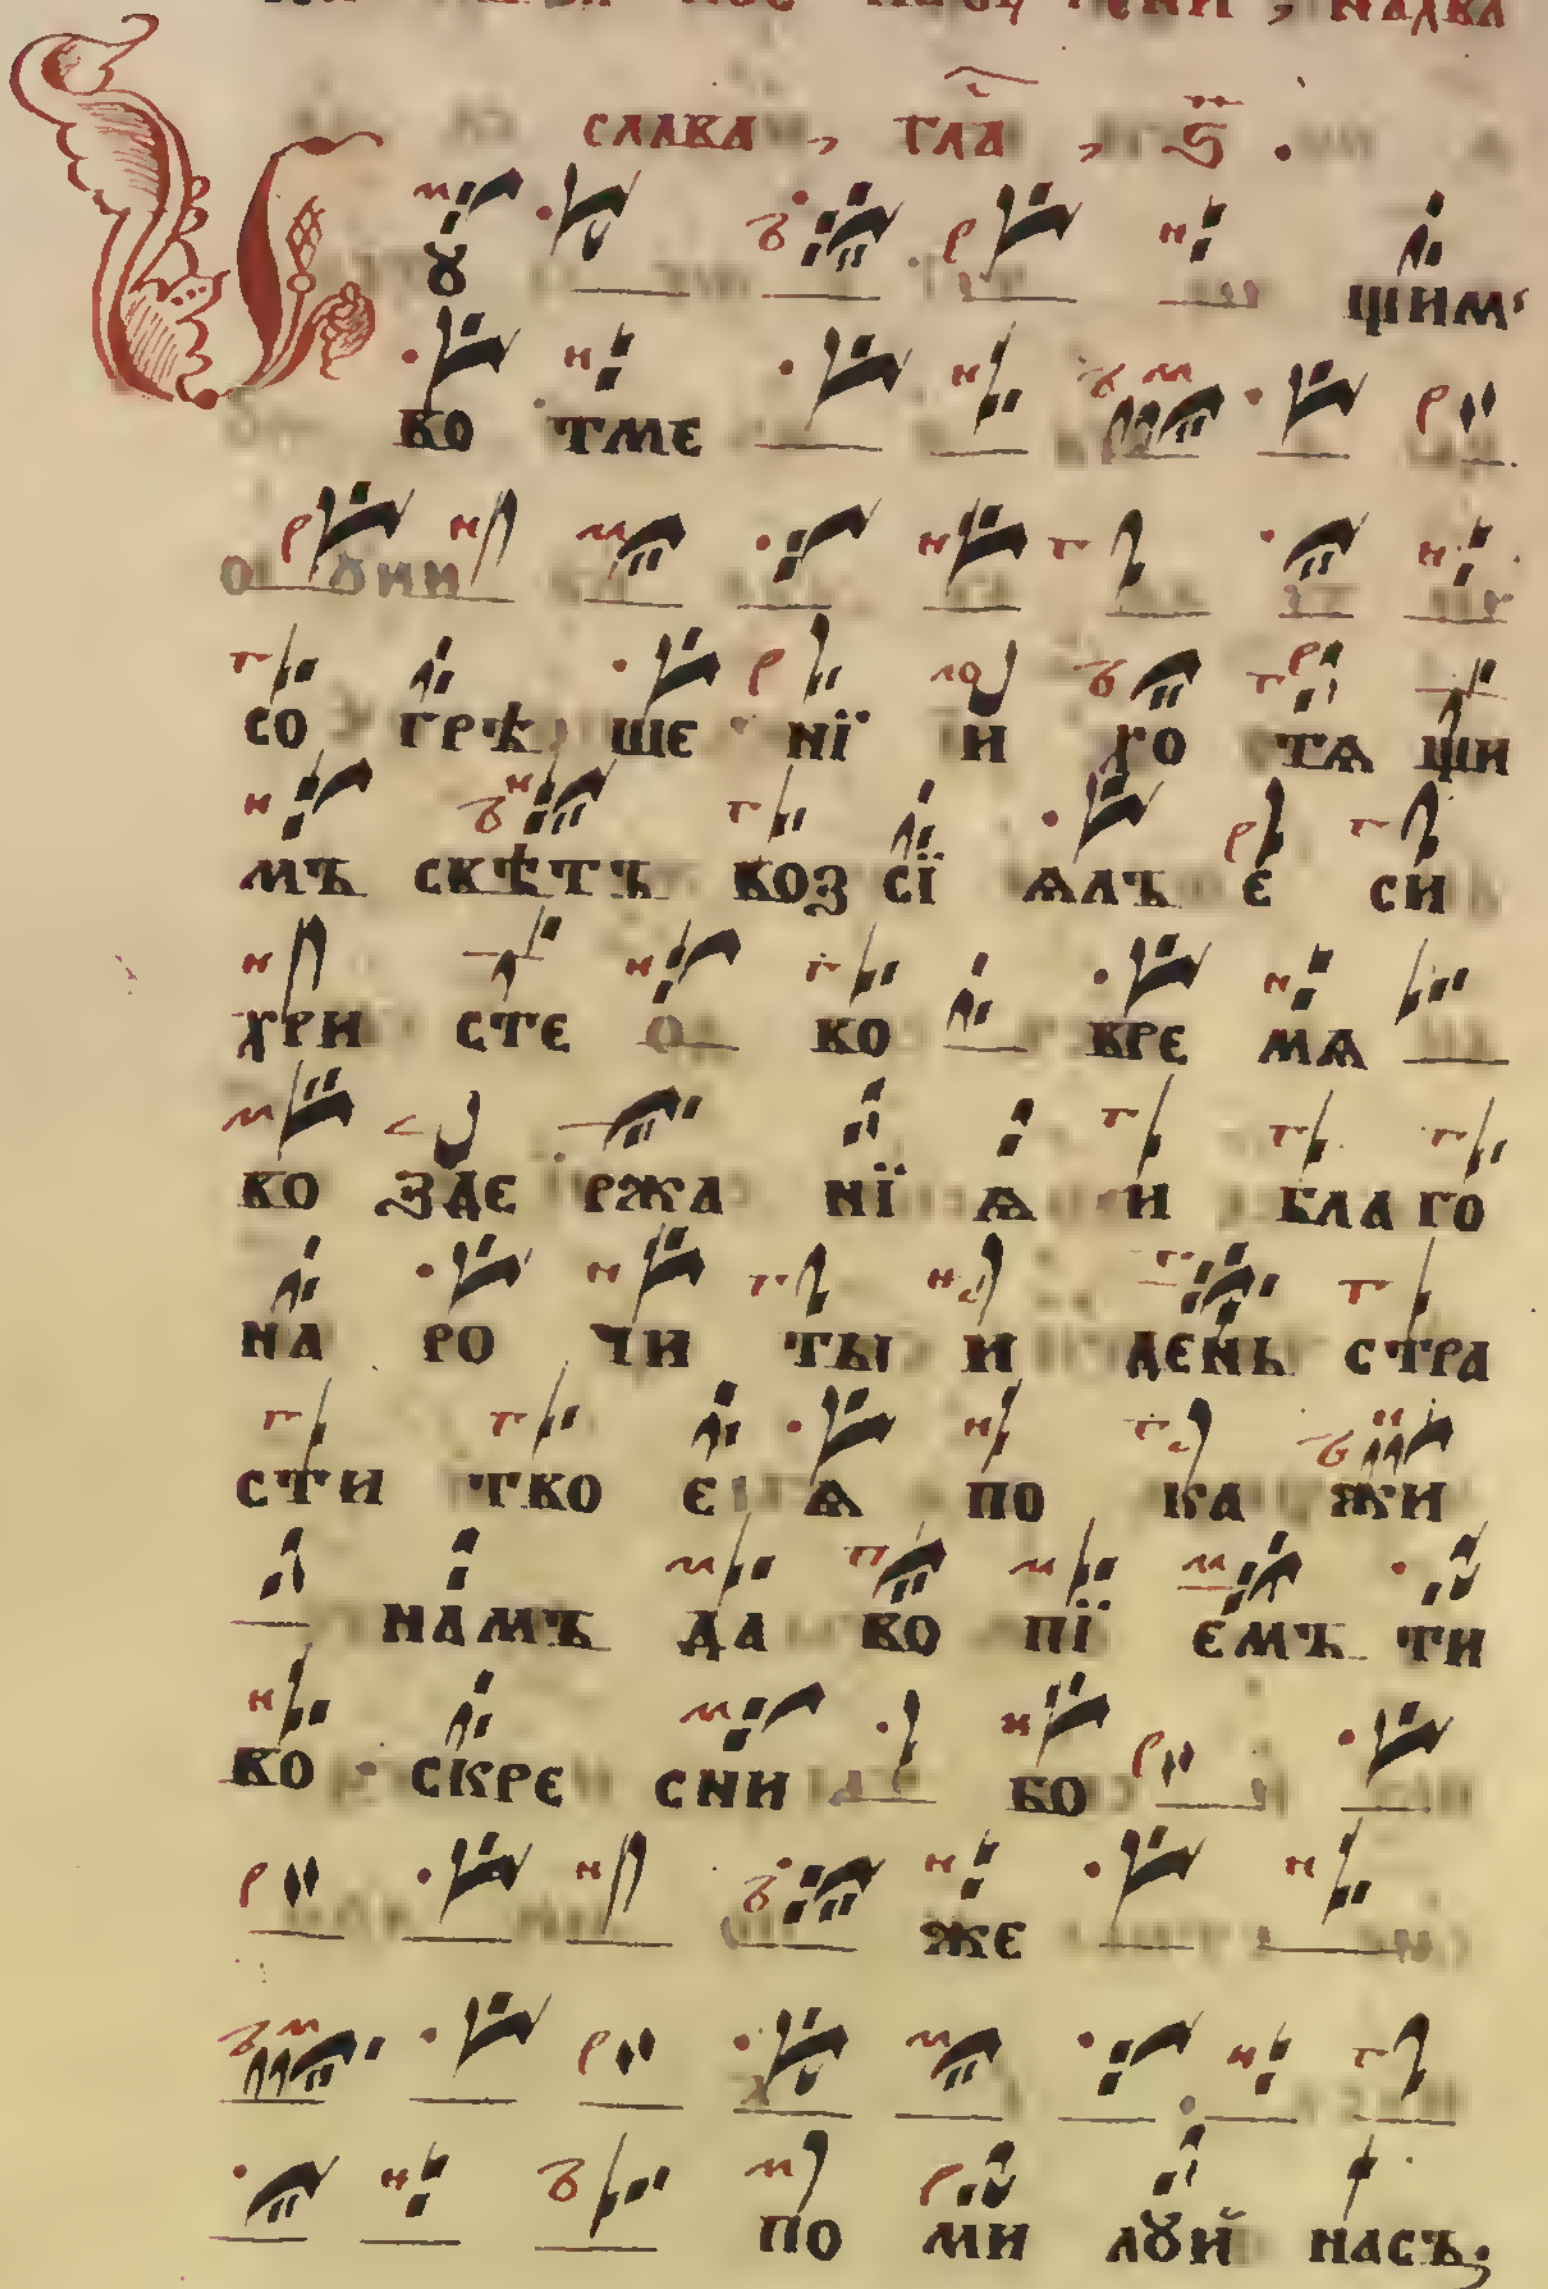 слава, гла, ѕ.
С ꙋ щим
во тме
со грѣ ше нї и хо тѧ щи
мъ свѣтъ воз сї ѧлъ е си
хри сте во вре мѧ
во зде ржа нї ѧ и бла го
на ро чи ты и день стра
сти тво е ѧ по ка жи
намъ да во пї емъ ти
во скре сни бо
же
по ми лꙋй насъ;